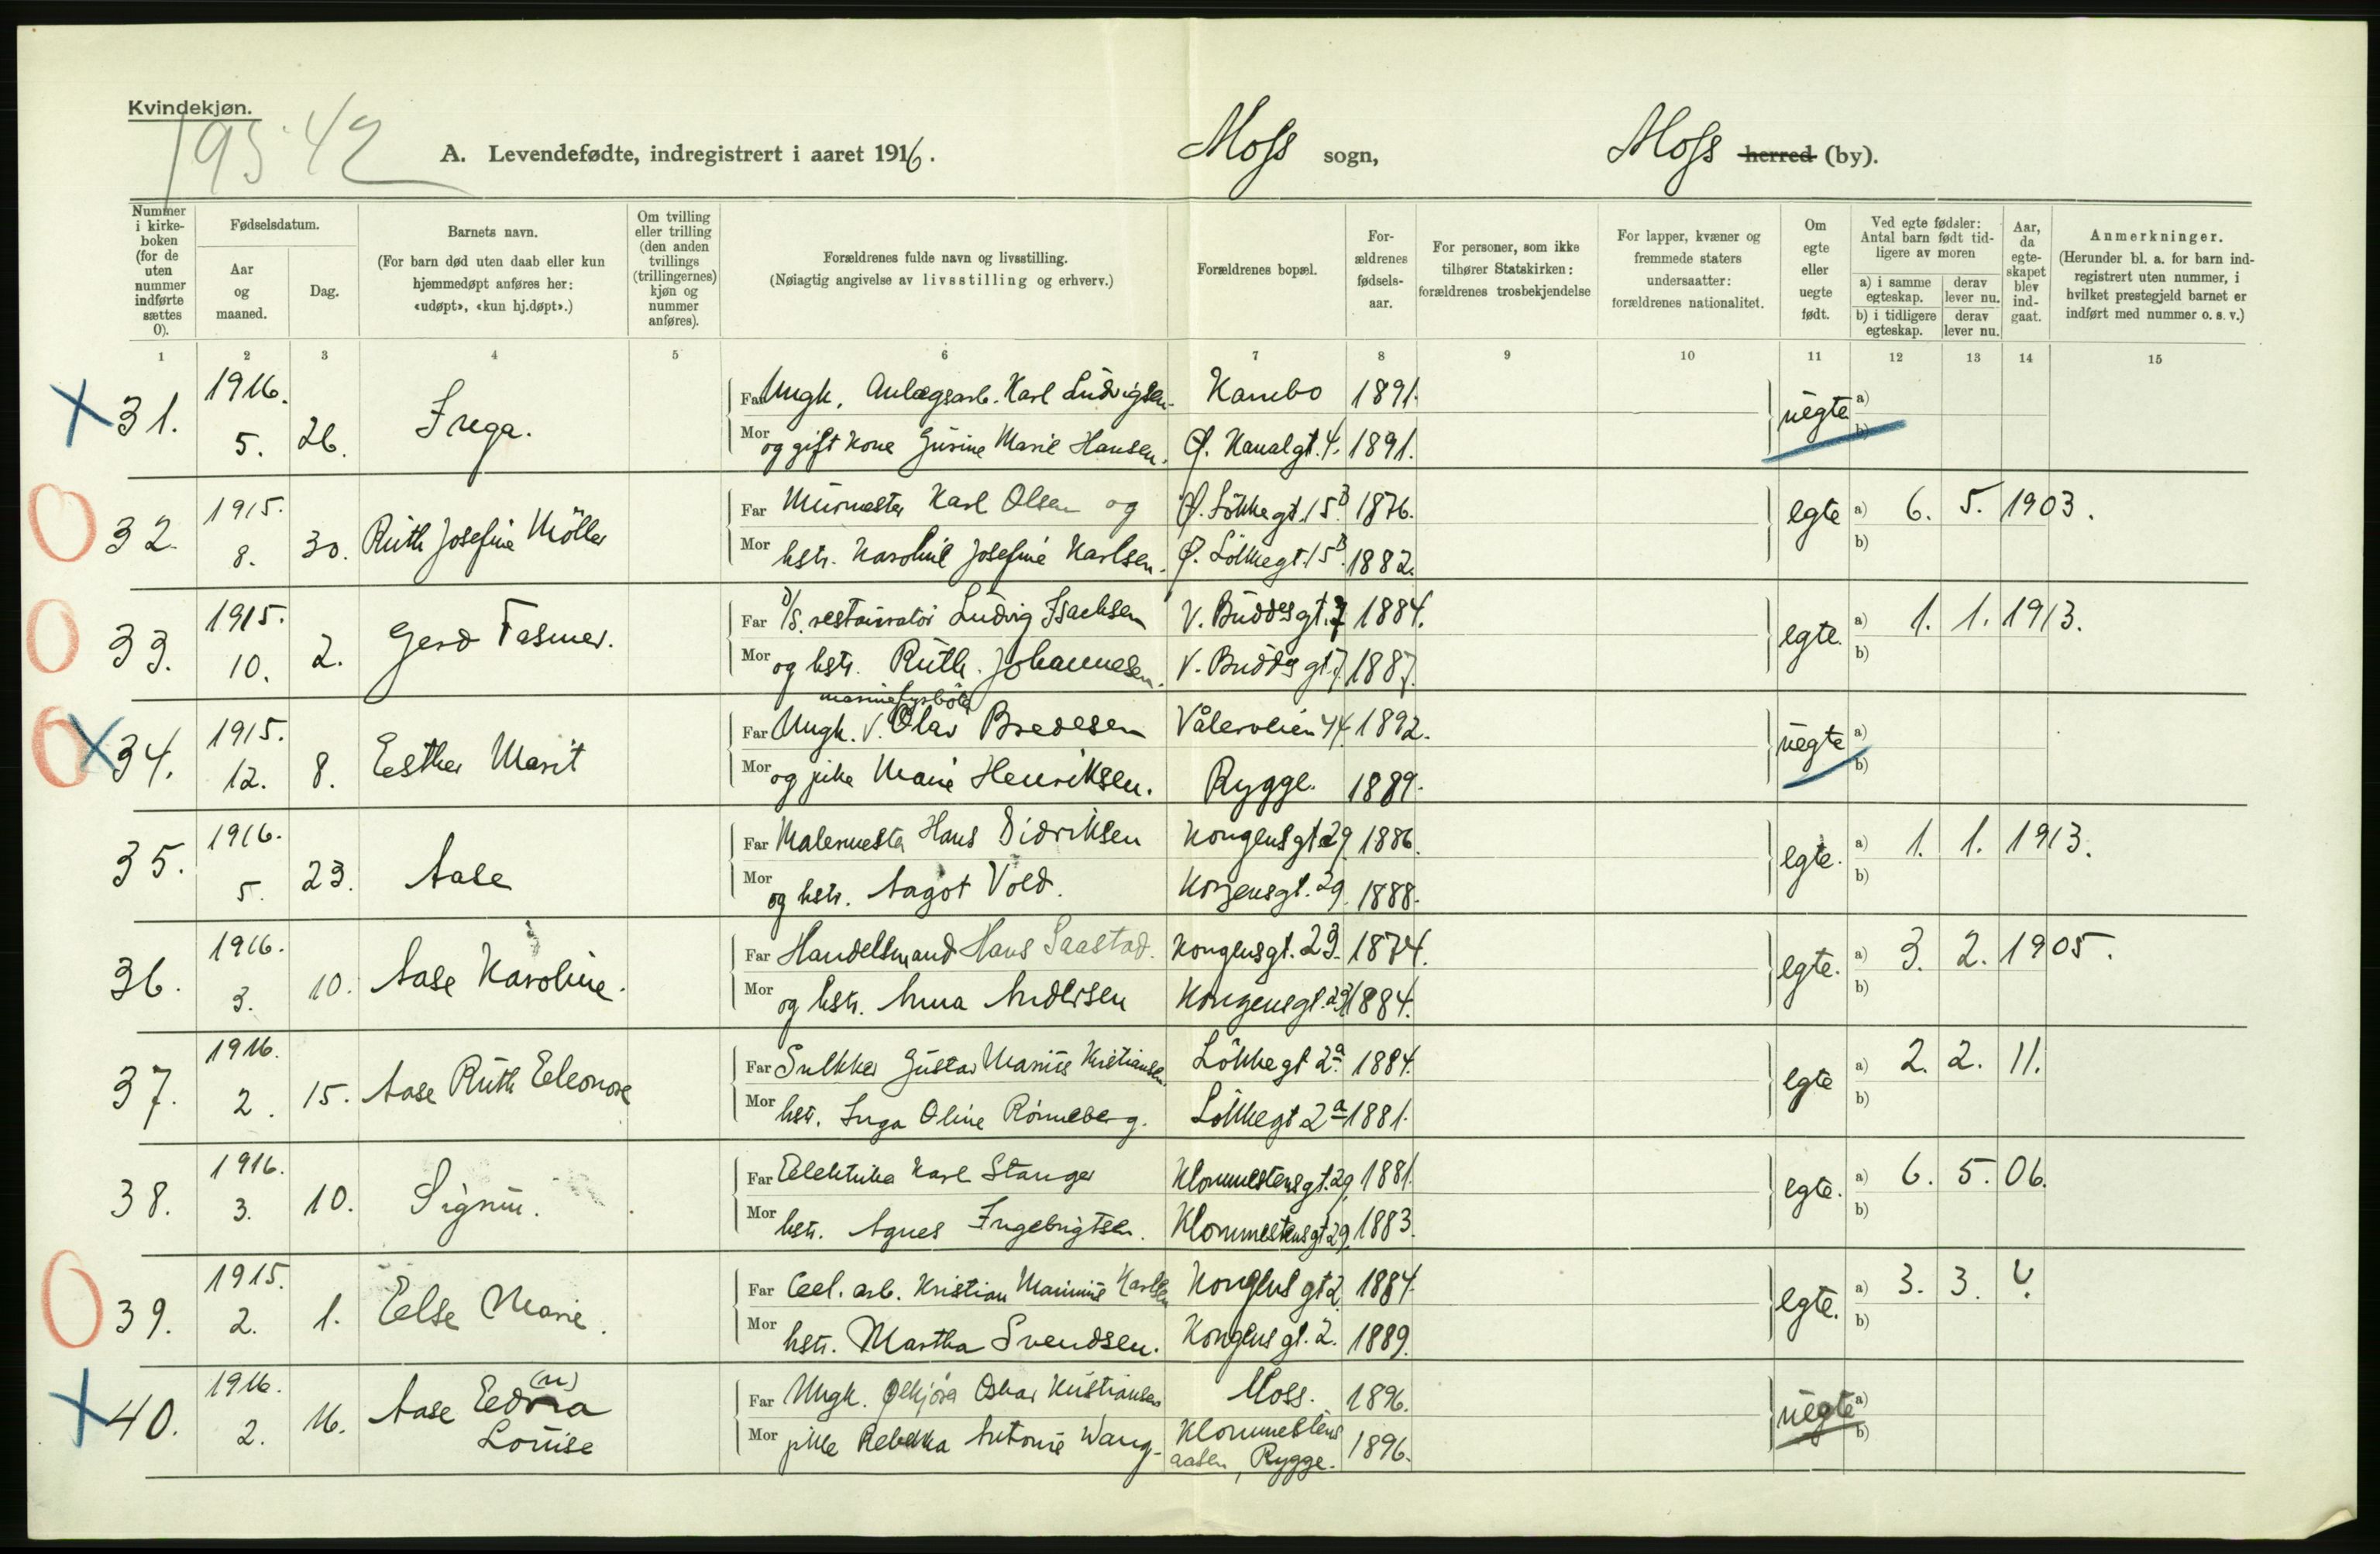 Kvindekjøn.
19542
A. Levendefødte, indregistrert i aaret 1916.
Moss sogn,
Moss herred (by).
Nummer i kirke-boken (for de uten nummer indførte sættes 0).
Fødselsdatum.
Aar og maaned.
Dag.
Barnets navn.
(For barn død uten daab eller kun hjemmedøpt anføres her: «udøpt», «kun hj.døpt».)
Om tvilling eller trilling (den anden tvillings (trillingernes) kjøn og nummer anføres).
Forældrenes fulde navn og livsstilling.
(Nøiagtig angivelse av livsstilling og erhverv.)
Forældrenes bopæl.
For-ældrenes fødsels-aar.
For personer, som ikke tilhører Statskirken: forældrenes trosbekjendelse
For lapper, kvæner og fremmede staters undersaatter: forældrenes nationalitet.
Om egte eller uegte født.
Ved egte fødsler: Antal barn født tid-ligere av moren
a) i samme egteskap.
derav lever nu.
b) i tidligere egteskap.
derav lever nu.
Aar, da egte-skapet blev ind-gaat.
Anmerkninger.
(Herunder bl. a. for barn ind-registrert uten nummer, i hvilket prestegjeld barnet er indført med nummer o. s. v.)
1 2 3 4 5 6 7 8 9 10 11 12 13 14 15
31. 1916. 5. 26. Inga.
Far Ungk. Anlægsarb. Karl Ludvigsen. Kambo 1891.
Mor og gift kone Gusine Marie Hansen. Ø. Kanalgt. 4. 1891.
uegte a) b)
32. 1915. 8. 30. Ruth Josefine Möller
Far Murmester Karl Olsen og Ø. Lökkegt. 15B. 1876.
Mor hstr. Karoline Josefine Karlsen. Ø. Lökkegt. 15B. 1882.
egte a) 6. 5. 1903. b)
33. 1915. 10. 2. Gerd Fasmer.
Far D/S. restauratør Ludvig Isachsen V. Buddesgt. 7 1884.
Mor og hstr. Ruth Johannesen. V. Buddesgt. 7. 1887.
egte. a) 1. 1. 1913. b)
34. 1915. 12. 8. Esther Marit
marinefyrbøter
Far Ungk. v. Olav Bredesen Vålerveien 44. 1892.
Mor og pike Marie Henriksen. Rygge. 1889.
uegte a) b)
35. 1916. 5. 23. Aase
Far Malermester Hans Didriksen Kongensgt. 29. 1886.
Mor og hstr. Aagot Vold. Kongensgt. 29. 1888.
egte. a) 1. 1. 1913. b)
36. 1916. 3. 10. Aase Karoline.
Far Handelsmand Hans Saastad. Kongensgt. 23. 1874.
Mor og hstr. Anna Andersen Kongensgt. 23. 1884.
egte. a) 3. 2. 1905. b)
37. 1916. 2. 15. Aase Ruth Eleonore
Far Snekker Gustav Marius Kristiansen. Lökkegt 2a 1884.
Mor hstr. Inga Oline Rönneberg. Lökkegt 2a 1881.
egte a) 2. 2. 11. b)
38. 1916. 3. 10. Signu.
Far Elektriker Karl Stanger Klommestensgt. 29. 1881.
Mor hstr. Agnes Ingebrigtsen. Klommestensgt. 29. 1883.
egte. a) 6. 5. 06. b)
39. 1915. 2. 1. Else Marie.
Far Cel. arb. Kristian Karlsen Kongens gt 2 1884.
Mor hstr. Martha Svendsen. Kongens gt. 2. 1889.
egte. a) 3. 3. ?. b)
40. 1916. 2. 16. Aase Edna (n) Louise
Far Ungk. Oskar Kristiansen Moss. 1896.
Mor pike Rebekka Antonie Wang. Klommestens aasen, Rygge. 1896.
uegte a) b)